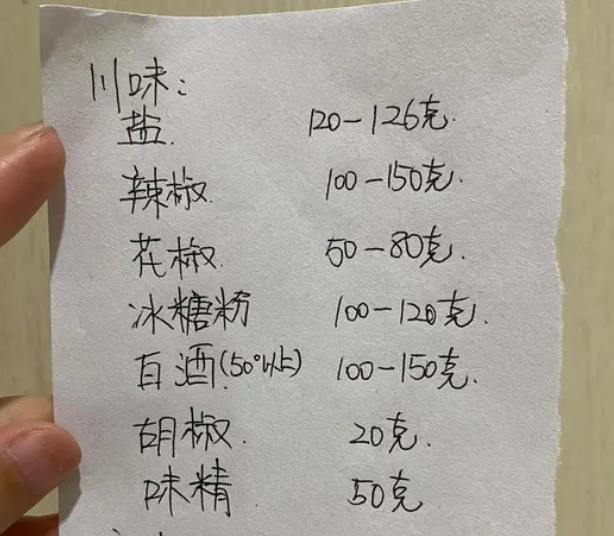 川味:
盐. 120-126克.
辣椒. 100-150克.
花椒. 50-80克.
冰糖粉 100-120克.
白酒(50°以上) 100-150克.
胡椒. 20克.
味精 50克